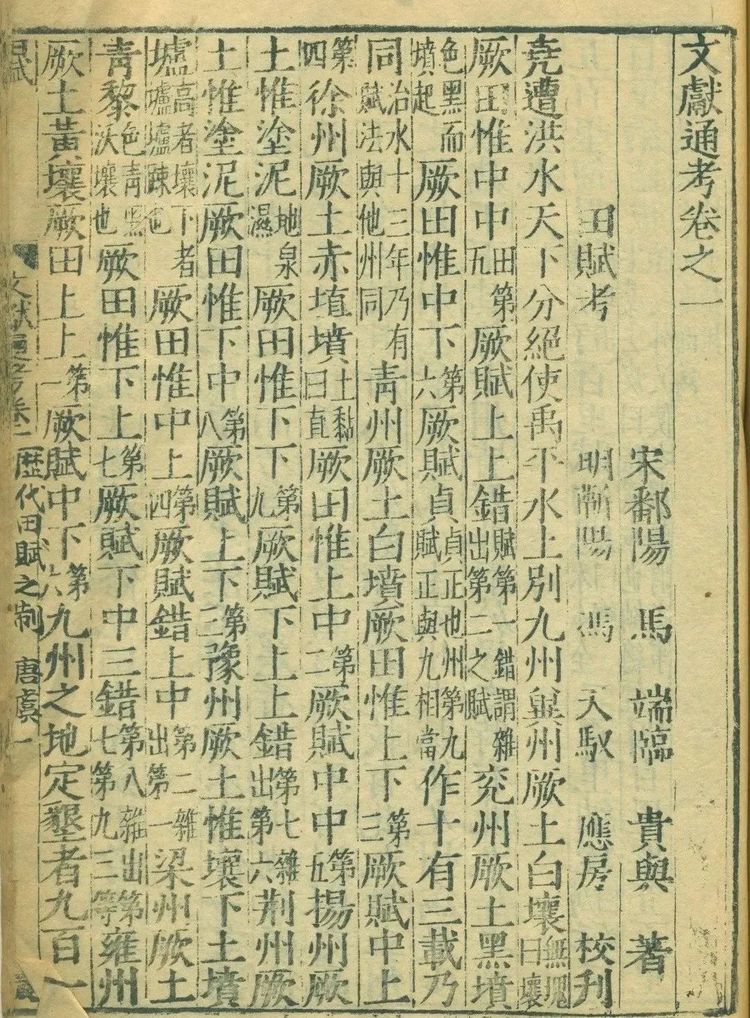 文獻通考卷之一
宋鄱陽 馬 端臨 貴與 著
田賦考 明蘄陽 馮 天馭 應房 校刊
堯遭洪水天下分絕使禹平水土別九州兾州厥土白壤無塊曰壤
厥田惟中中田第五厥賦上上錯賦第一錯謂雜出第二之賦兖州厥土黑墳
色黑而墳起厥田惟中下第六厥賦貞貞正也州第九賦正與九相當作十有三載乃
同治水十三年乃有賦法與他州同青州厥土白墳厥田惟上下第三厥賦中上
第四徐州厥土赤埴墳土黏曰直厥田惟上中第二厥賦中中第五揚州厥
土惟塗泥地泉濕厥田惟下下第九厥賦下上上錯第七雜出第六荆州厥
土惟塗泥厥田惟下中第八厥賦上下第三豫州厥土惟壤下土墳
壚高者壤下者壚壚疎也厥田惟中上第四厥賦錯上中第二雜出第一梁州厥土
青黎色青黑沃壤也厥田惟下上第七厥賦下中三錯第八雜出第七第九三等雍州
厥土黃壤厥田上上第一厥賦中下第六九州之地定墾者九百一
文獻通考卷一 歷代田賦之制 唐虞 一